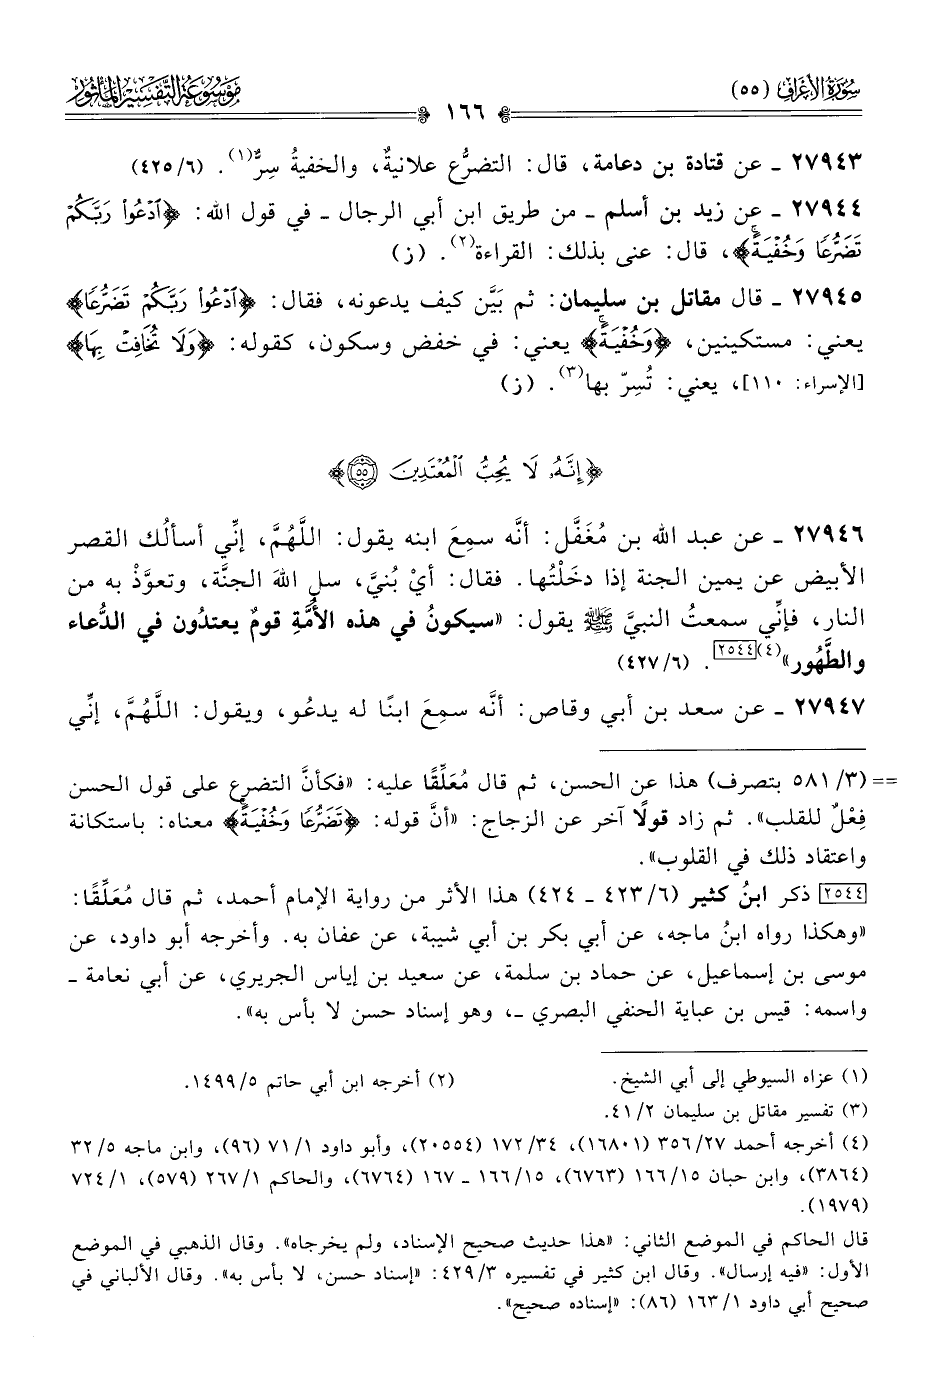 سُورَةُ الأَعْرَافِ (٥٥)
١٦٦
مَوْسُوعَةُ التَّفْسِيرِ المَأْثُورِ
٢٧٩٤٣ ـ عن قتادة بن دعامة، قال: التضرُّع علانيةٌ، والخفيةُ سِرٌّ(١). (٤٢٥/٦)
٢٧٩٤٤ ـ عن زيد بن أسلم ـ من طريق ابن أبي الرجال ـ في قول الله: ﴿ٱدۡعُواْ رَبَّكُمۡ
تَضَرُّعٗا وَخُفۡيَةًۚ﴾، قال: عنى بذلك: القراءة(٢). (ز)
٢٧٩٤٥ ـ قال مقاتل بن سليمان: ثم بَيَّن كيف يدعونه، فقال: ﴿ٱدۡعُواْ رَبَّكُمۡ تَضَرُّعٗا﴾
يعني: مستكينين، ﴿وَخُفۡيَةًۚ﴾ يعني: في خفض وسكون، كقوله: ﴿وَلَا تُخَافِتۡ بِهَا﴾
[الإسراء: ١١٠]، يعني: تُسِرّ بها(٣). (ز)
﴿إِنَّهُۥ لَا يُحِبُّ ٱلۡمُعۡتَدِينَ ٥٥﴾
٢٧٩٤٦ ـ عن عبد الله بن مُغَفَّل: أنَّه سمِعَ ابنه يقول: اللَّهُمَّ، إنِّي أسألُك القصر
الأبيض عن يمين الجنة إذا دخَلْتُها. فقال: أيْ بُنيَّ، سلِ اللهَ الجنَّة، وتعوَّذْ به من
النار، فإنِّي سمعتُ النبيَّ ﷺ يقول: «سيكونُ في هذه الأُمَّةِ قومٌ يعتدُون في الدُّعاء
والطَّهُور»(٤)[٢٥٤٤]. (٤٢٧/٦)
٢٧٩٤٧ ـ عن سعد بن أبي وقاص: أنَّه سمِعَ ابنًا له يدعُو، ويقول: اللَّهُمَّ، إنِّي
== (٥٨١/٣ بتصرف) هذا عن الحسن، ثم قال مُعَلِّقًا عليه: «فكأنَّ التضرع على قول الحسن
فِعْلٌ للقلب». ثم زاد قولًا آخر عن الزجاج: «أنَّ قوله: ﴿تَضَرُّعٗا وَخُفۡيَةًۚ﴾ معناه: باستكانة
واعتقاد ذلك في القلوب».
[٢٥٤٤] ذكر ابنُ كثير (٤٢٣/٦ ـ ٤٢٤) هذا الأثر من رواية الإمام أحمد، ثم قال مُعَلِّقًا:
«وهكذا رواه ابنُ ماجه، عن أبي بكر بن أبي شيبة، عن عفان به. وأخرجه أبو داود، عن
موسى بن إسماعيل، عن حماد بن سلمة، عن سعيد بن إياس الجريري، عن أبي نعامة ـ
واسمه: قيس بن عباية الحنفي البصري ـ، وهو إسناد حسن لا بأس به».
(١) عزاه السيوطي إلى أبي الشيخ. (٢) أخرجه ابن أبي حاتم ١٤٩٩/٥.
(٣) تفسير مقاتل بن سليمان ٤١/٢.
(٤) أخرجه أحمد ٣٥٦/٢٧ (١٦٨٠١)، ١٧٢/٣٤ (٢٠٥٥٤)، وأبو داود ٧١/١ (٩٦)، وابن ماجه ٣٢/٥
(٣٨٦٤)، وابن حبان ١٦٦/١٥ (٦٧٦٣)، ١٦٦/١٥ ـ ١٦٧ (٦٧٦٤)، والحاكم ٢٦٧/١ (٥٧٩)، ٧٢٤/١
(١٩٧٩).
قال الحاكم في الموضع الثاني: «هذا حديث صحيح الإسناد، ولم يخرجاه». وقال الذهبي في الموضع
الأول: «فيه إرسال». وقال ابن كثير في تفسيره ٤٢٩/٣: «إسناد حسن، لا بأس به». وقال الألباني في
صحيح أبي داود ١٦٣/١ (٨٦): «إسناده صحيح».